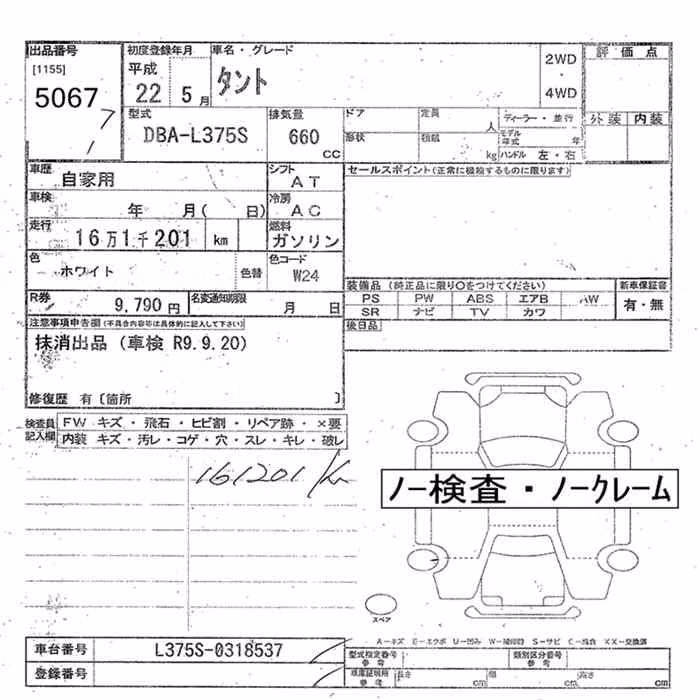 出品番号
[1155]
5067
初度登録年月
平成
22 5月
車名・グレード
タント
2WD
・
4WD
評価点
外装 内装
型式
DBA-L375S
排気量
660
CC
ドア
定員
人
形状
積載
kg
ディーラー・並行
モデル年式 年
ハンドル 左・右
車歴
自家用
シフト
AT
セールスポイント(正常に機能するものに限ります)
車検
年 月( 日)
冷房
AC
走行
16万1千201 km
燃料
ガソリン
色
ホワイト
色替
色コード
W24
装備品 (純正品に限り○をつけてください)
新車保証書
PS PW ABS エアB AW
有・無
SR ナビ TV カワ
R券
9,790円
名変通知期限
月 日
後日品
注意事項申告欄(不具合内容等は具体的に記入して下さい)
抹消出品 (車検 R9.9.20)
修復歴 有〔箇所 〕
検査員記入欄
FW キズ・飛石・ヒビ割・リペア跡・×要
内装 キズ・汚レ・コゲ・穴・スレ・キレ・破レ
161201 km
ノー検査・ノークレーム
スペア
A-キズ E-エクボ U-凹み W-補修跡 S-サビ C-腐食 XX-交換済
車台番号
L375S-0318537
型式指定番号
参考
類別区分番号
参考
登録番号
車庫証明用
参考
長さ cm
幅 cm
高さ cm